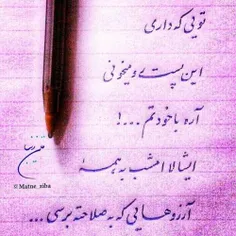 تویی که داری
این پست و میخونی
آره با خودتم ...!
ایشالا امشب به همهٔ
آرزوهایی که به صلاحته برسی ...
متن زیبا
© Matne_ziba